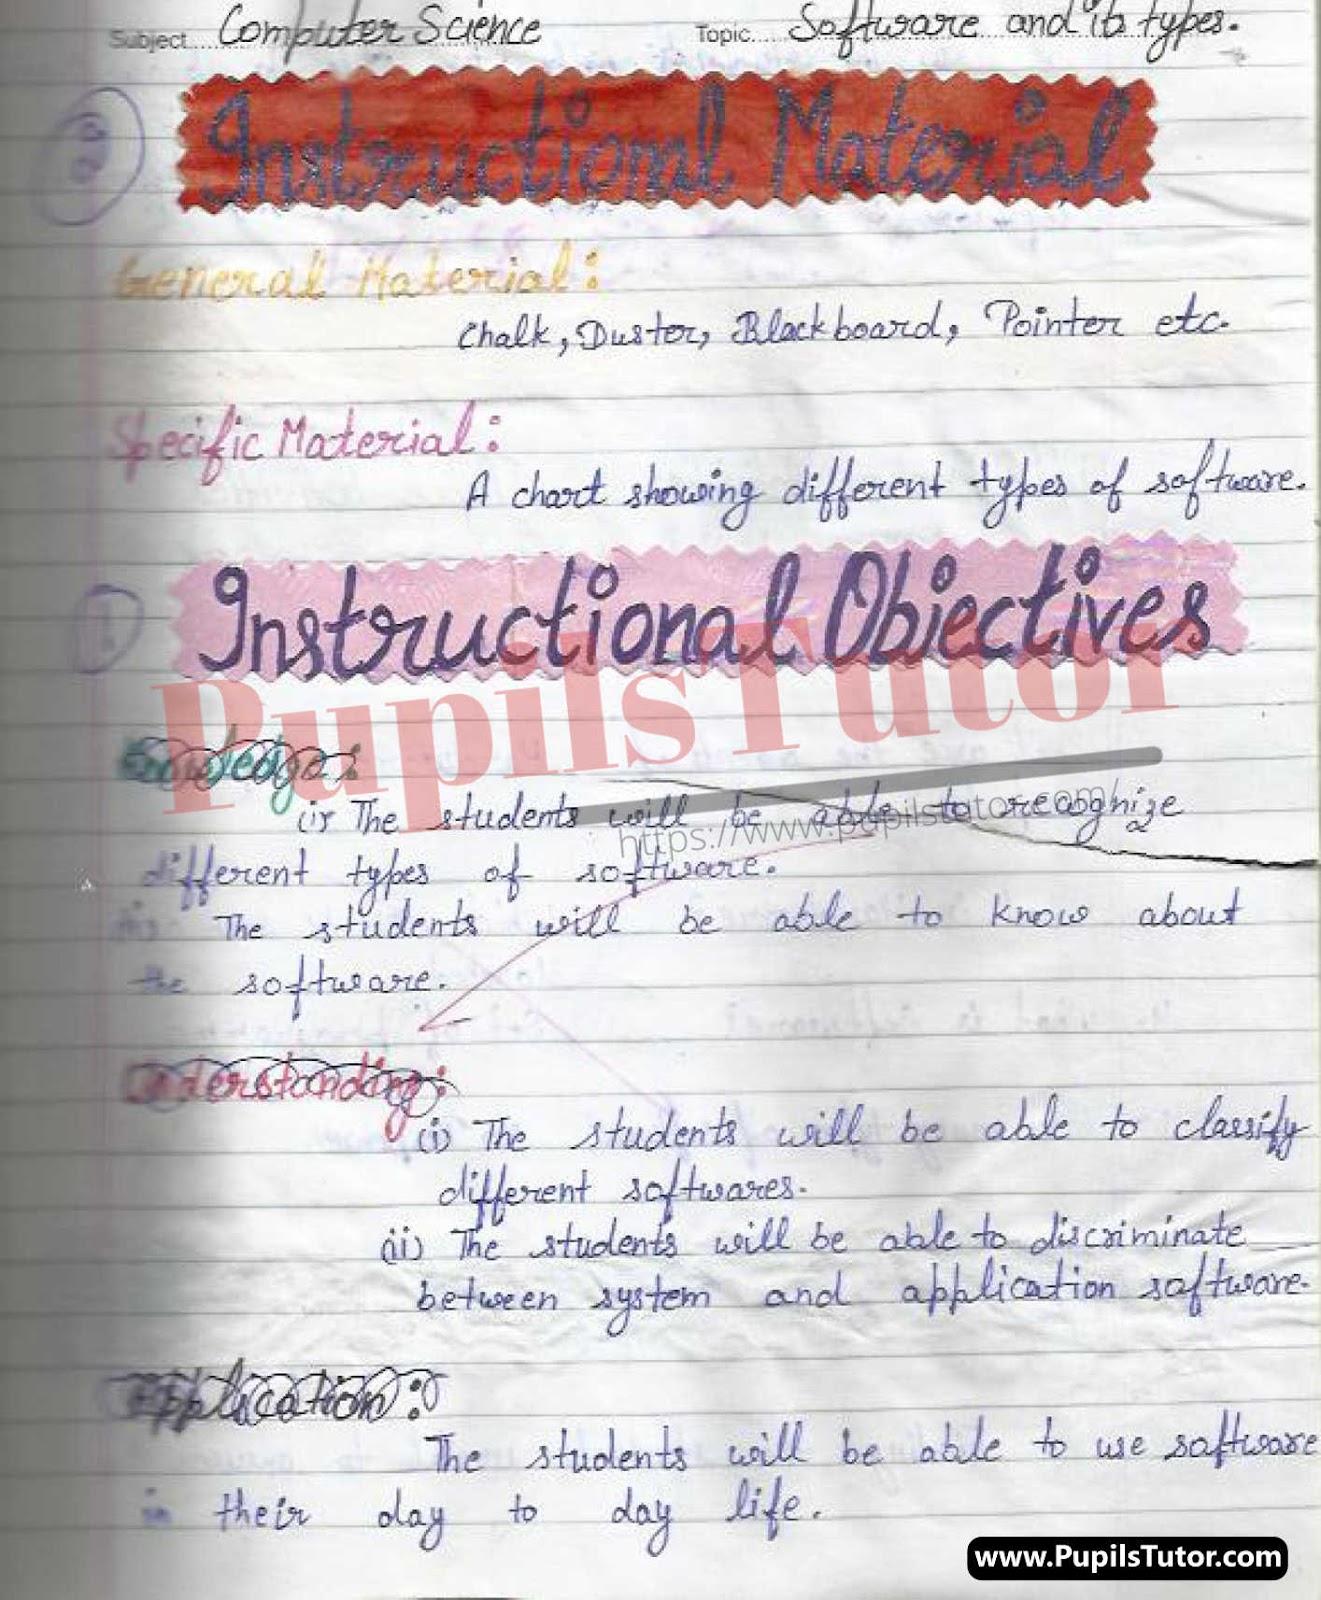 Subject Computer Science Topic Software and its types.
Instructional Material
General Material:
Chalk, Duster, Blackboard, Pointer etc.
Specific Material:
A chart showing different types of software.
Instructional Objectives
PupilsTutor
Knowledge:
(i) The students will be able to recognize
https://www.pupilstutor.com
different types of software.
The students will be able to know about
the software.
Understanding:
(i) The students will be able to classify
different softwares.
(ii) The students will be able to discriminate
between system and application software.
Application:
The students will be able to use software
in their day to day life.
www.PupilsTutor.com